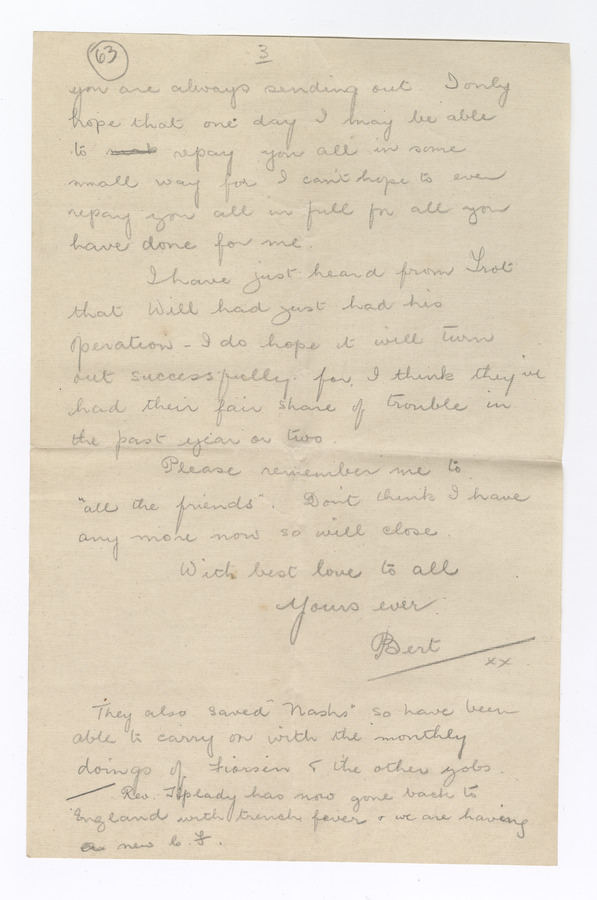 63
3
you are always sending out I only
hope that one day I may be able
to repay you all in some
small way for I can't hope to ever
repay you all in full for all you
have done for me.
I have just heard from Trot
that Will had just had his
operation - I do hope it will turn
out successfully for, I think they've
had their fair share of trouble in
the past year or two.
Please remember me to
"all the friends". Don't think I have
any more now so will close.
With best love to all
Yours ever.
Bert
xx
They also saved "Nashs" so have been
able to carry on with the monthly
doings of & the other yobs.
Rev. Toplady has now gone back to
England with trench fever & we are having
a new C. F.